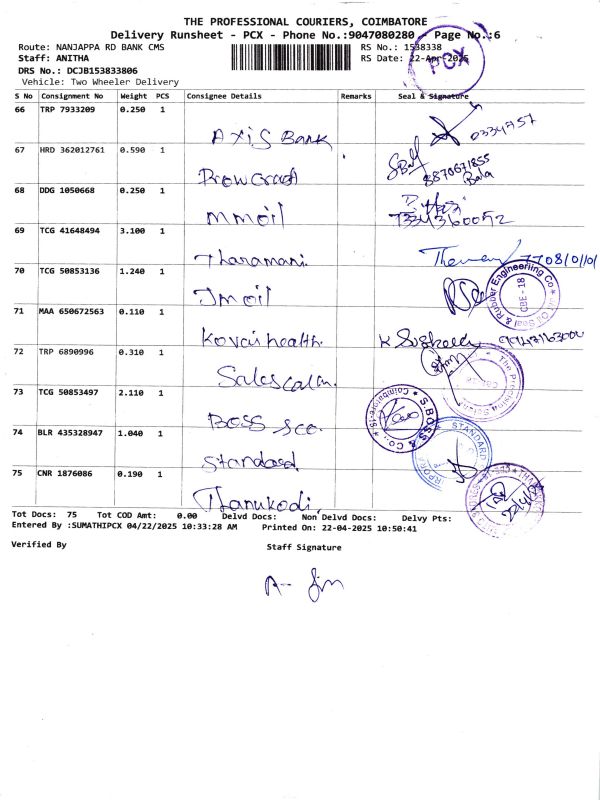 THE PROFESSIONAL COURIERS, COIMBATORE
Delivery Runsheet - PCX - Phone No.:9047080280 Page No.:6
Route: NANJAPPA RD BANK CMS RS No.: 1538338
Staff: ANITHA RS Date: 22-Apr-2025
PCX
DRS No.: DCJB153833806
Vehicle: Two Wheeler Delivery
S No Consignment No Weight PCS Consignee Details Remarks Seal & Signature
66 TRP 7933209 0.250 1
Axis Bank 0334757
67 HRD 362012761 0.590 1
8870671855
Bala
68 DDG 1050668 0.250 1
mmoil 7334360052
69 TCG 41648494 3.100 1
Tharamani 7708101101
70 TCG 50853136 1.240 1
Jmoil
71 MAA 650672563 0.110 1
Kovaihealth
72 TRP 6890996 0.310 1
73 TCG 50853497 2.110 1
BOSS sco.
74 BLR 435328947 1.040 1
Standard
75 CNR 1876086 0.190 1
Thanukodi
Tot Docs: 75 Tot COD Amt: 0.00 Delvd Docs: Non Delvd Docs: Delvy Pts:
Entered By :SUMATHIPCX 04/22/2025 10:33:28 AM Printed On: 22-04-2025 10:50:41
Verified By Staff Signature